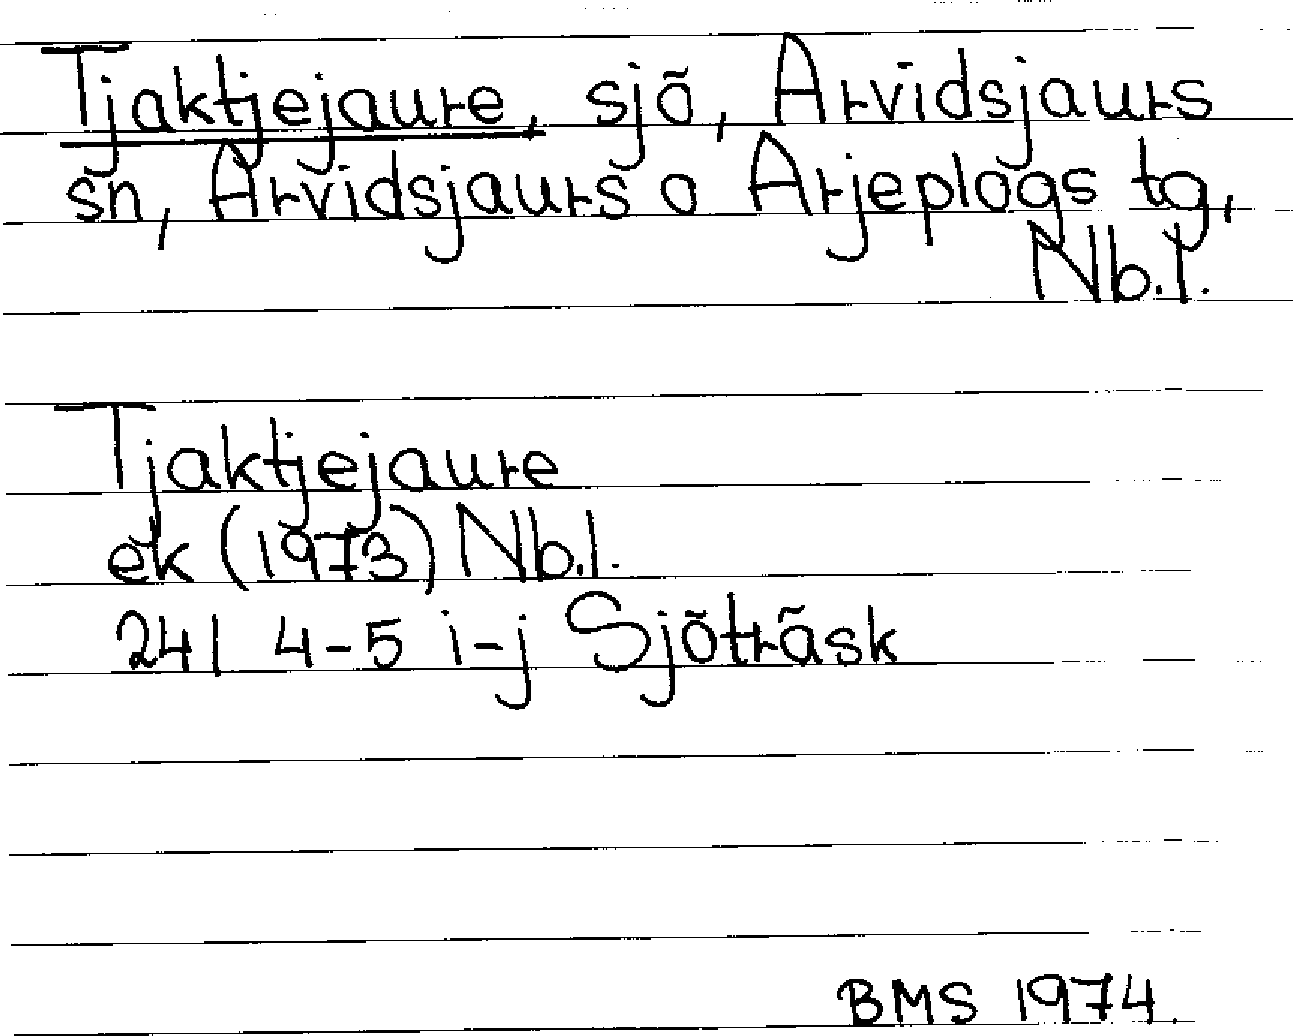 Tjaktjejaure, sjö, Arvidsjaurs
sn, Arvidsjaurs o Arjeplogs tg,
Nb.l.
Tjaktjejaure
ek (1973) Nb.l.
24I 4-5 i-j Sjöträsk
BMS 1974.